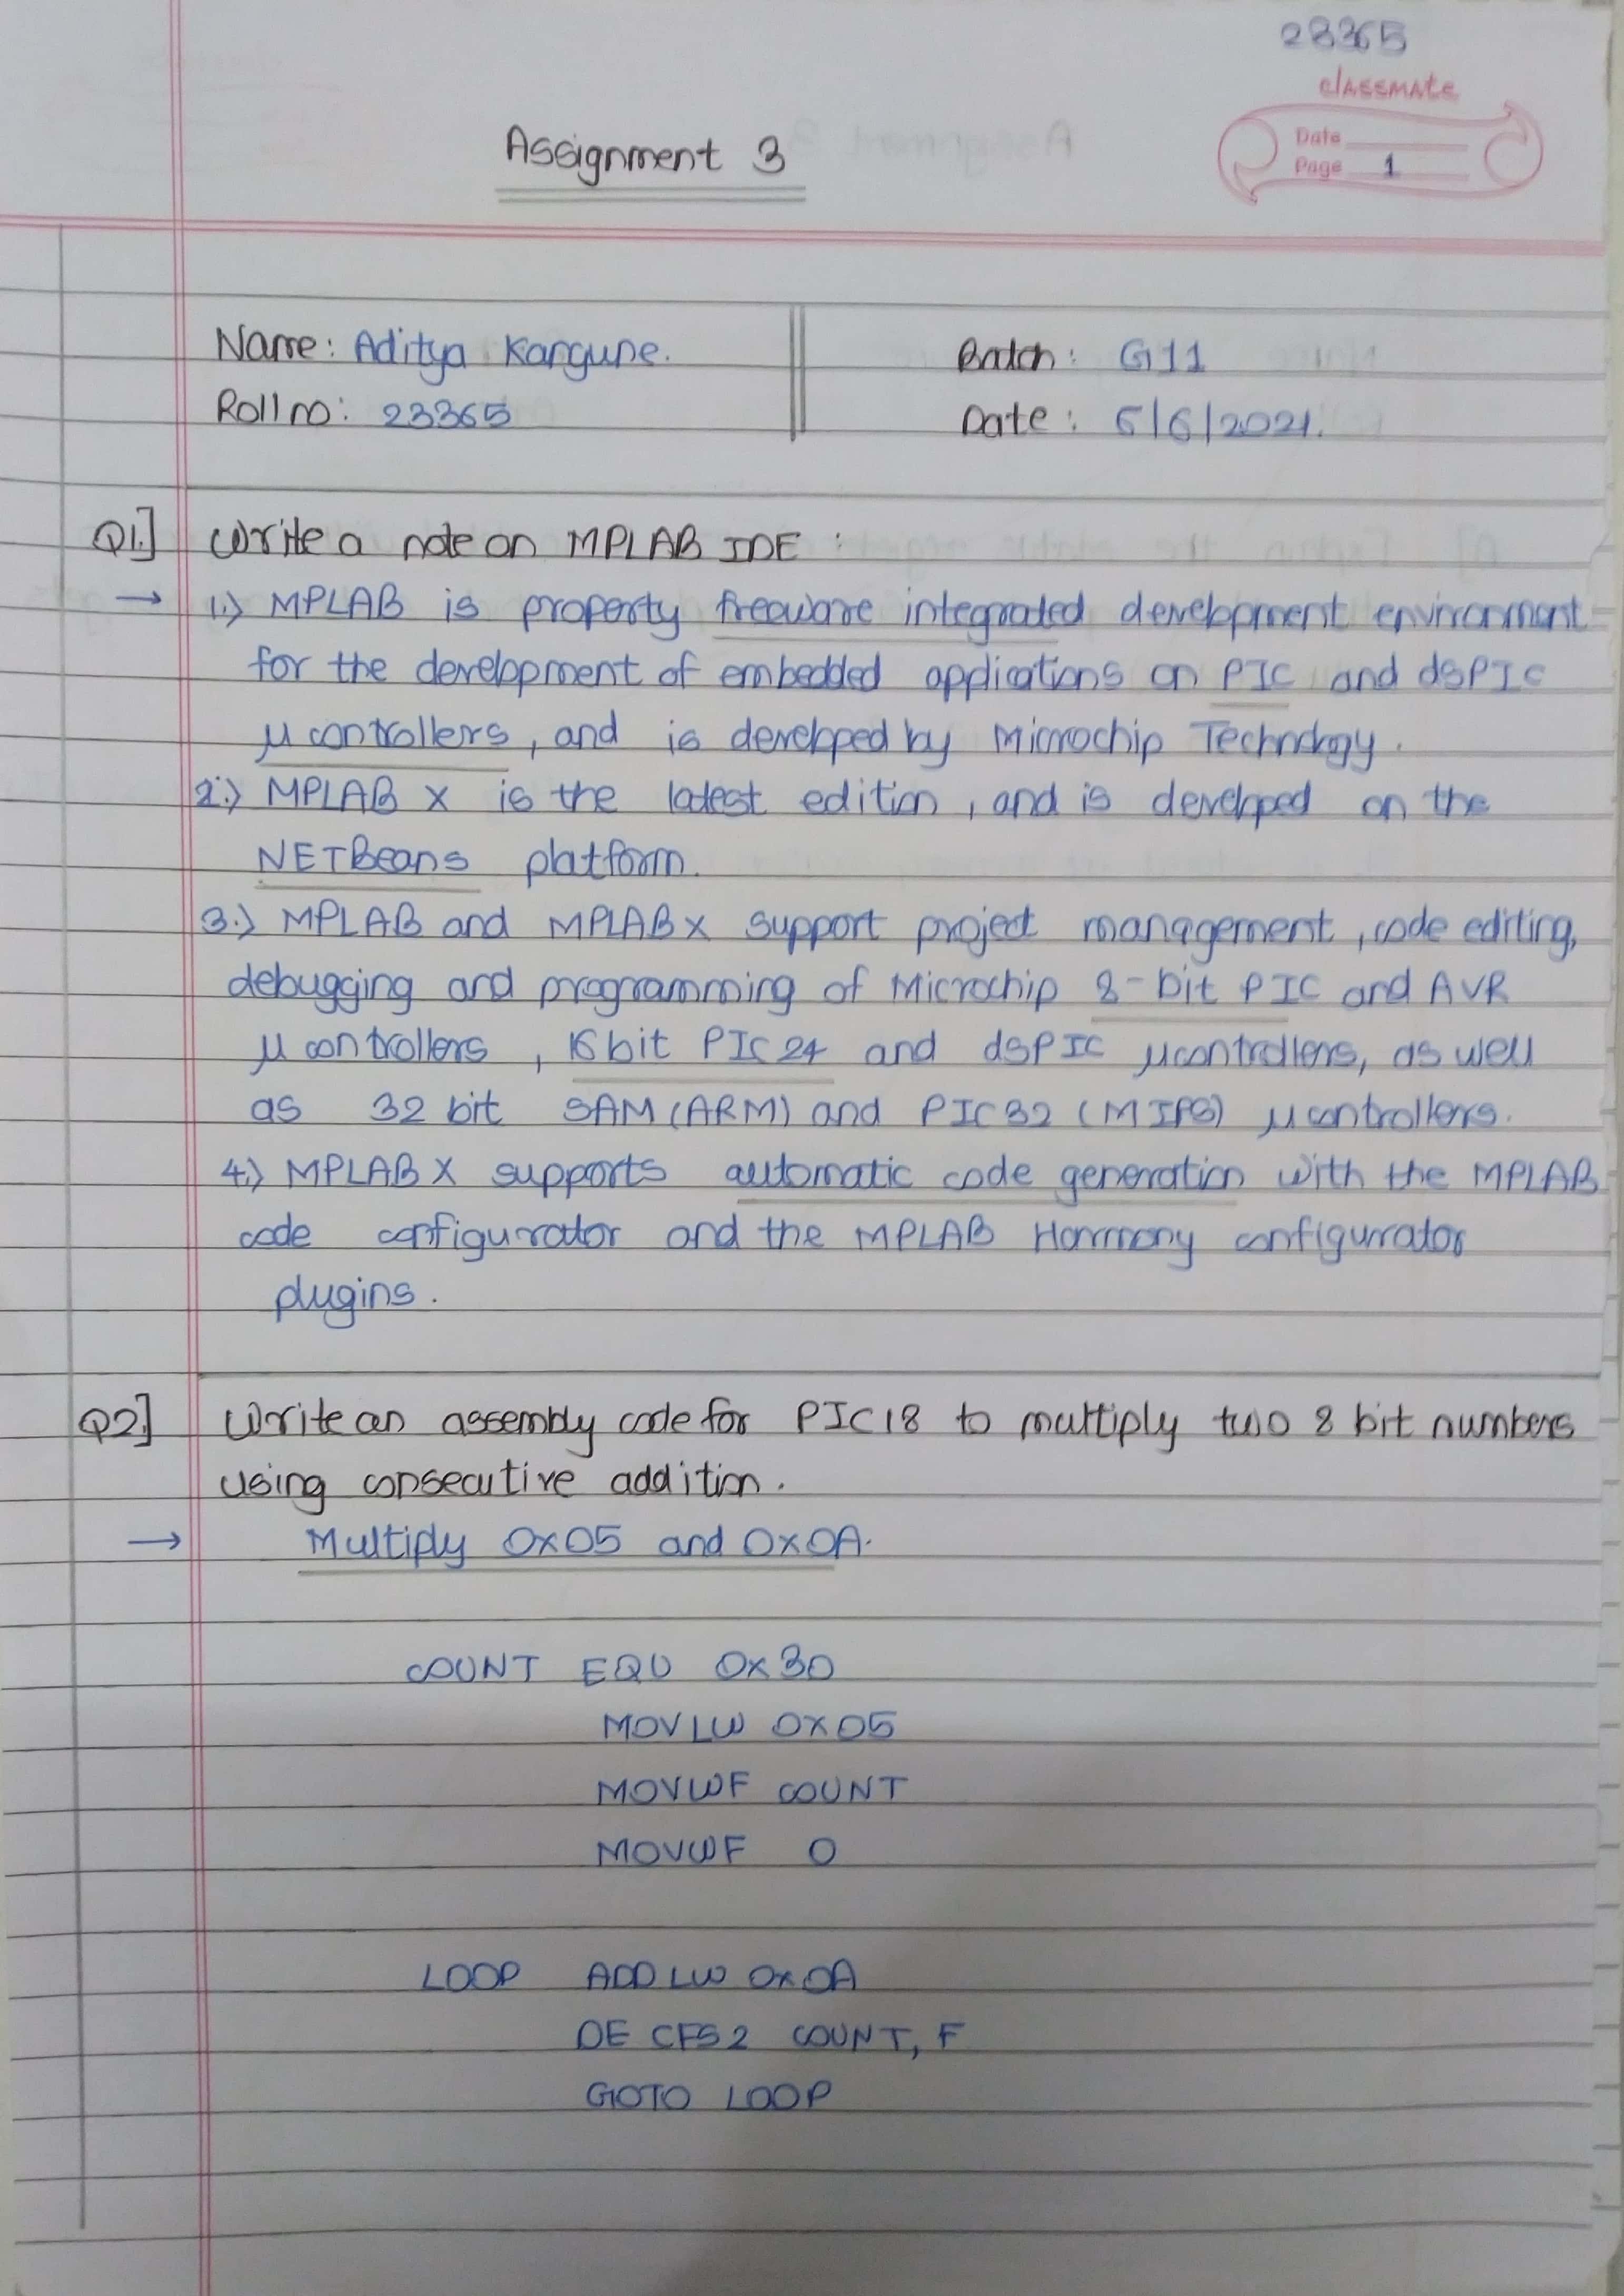 23365
classmate
Date
Page 1
Assignment 3
Name: Aditya Kangune.
Batch: G11
Roll no: 23365
Date: 6/6/2021.
Q1.] Write a note on MPLAB IDE :
→ 1.) MPLAB is property freeware integrated development environment
for the development of embedded applications on PIC and dsPIC
μcontrollers, and is developed by Microchip Technology.
2.) MPLAB X is the latest edition, and is developed on the
NETBeans platform.
3.) MPLAB and MPLABX support project management, code editing,
debugging and programming of Microchip 8-bit PIC and AVR
μcontrollers, 16bit PIC24 and dsPIC μcontrollers, as well
as 32 bit SAM (ARM) and PIC32 (MIPS) μcontrollers.
4.) MPLABX supports automatic code generation with the MPLAB
code configurator and the MPLAB Harmony configurator
plugins.
Q2.] Write an assembly code for PIC18 to multiply two 8 bit numbers
using consecutive addition.
→ Multiply 0x05 and 0x0A.
COUNT EQU 0x30
MOVLW 0x05
MOVWF COUNT
MOVWF 0
LOOP ADDLW 0x0A
DECFSZ COUNT, F
GOTO LOOP